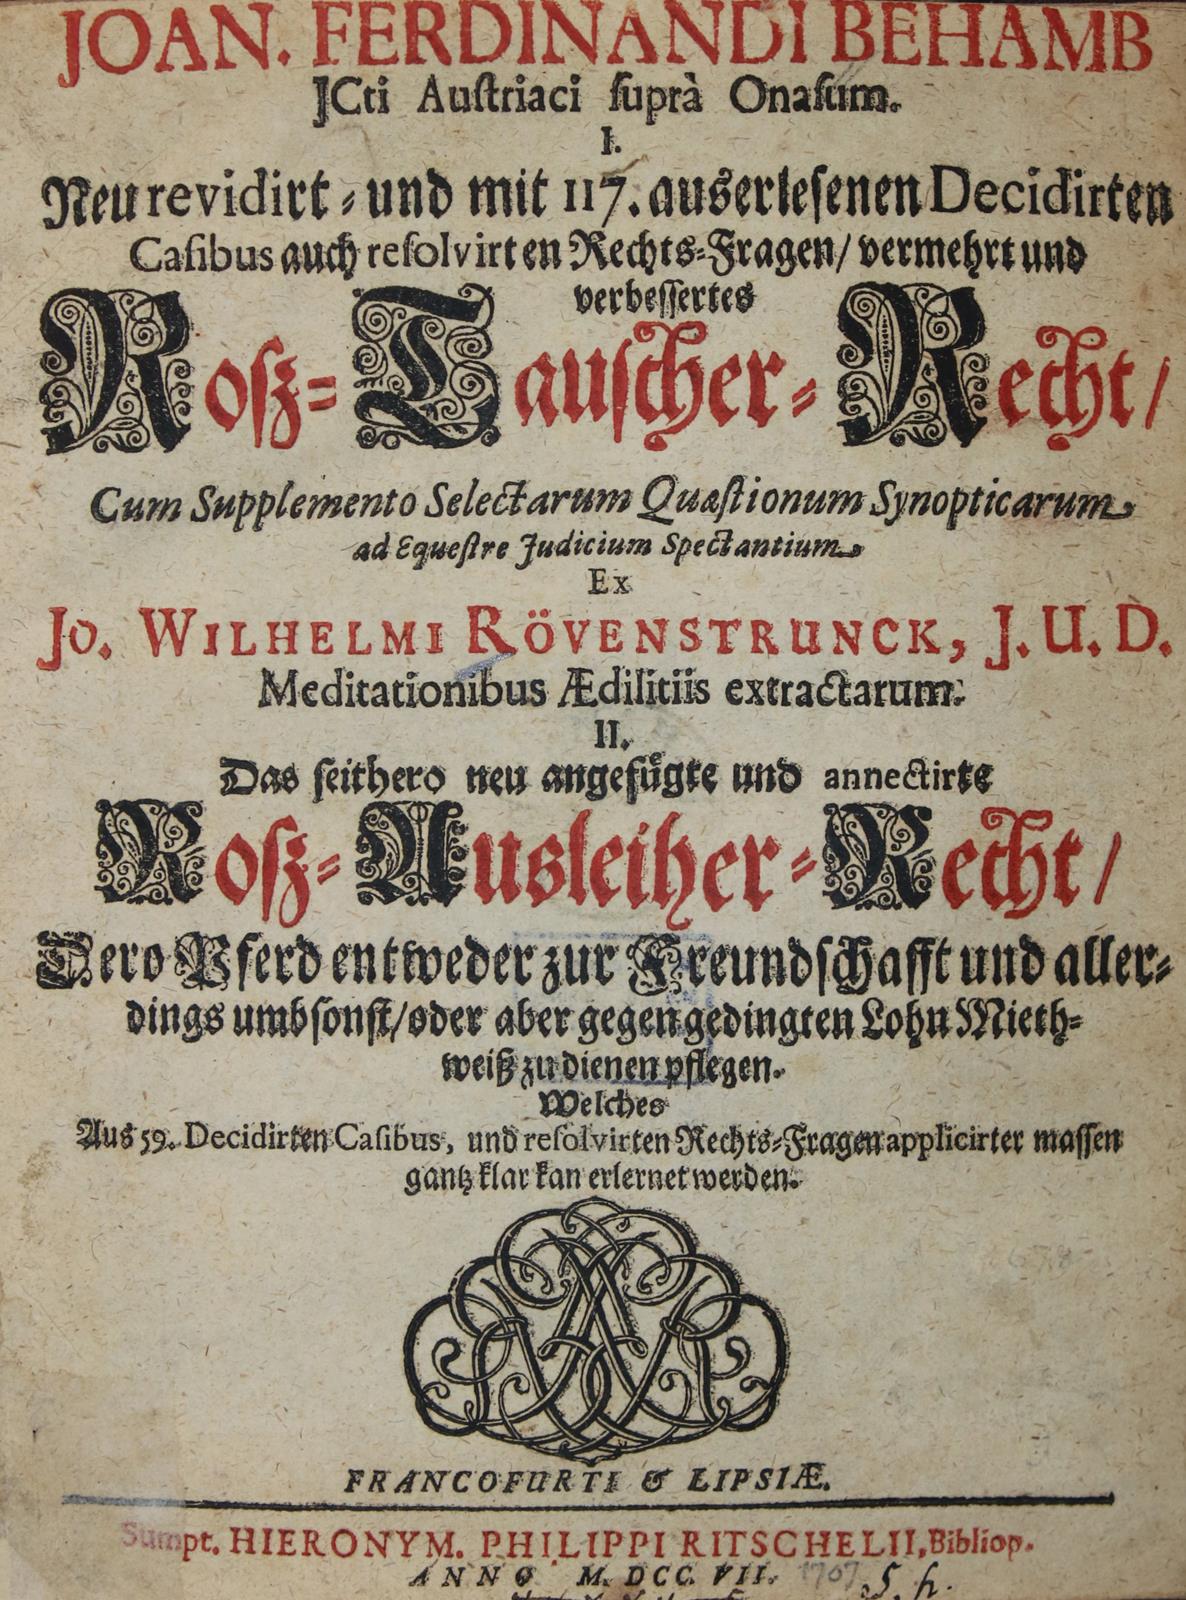 JOAN. FERDINANDI BEHAMB
JCti Auſtriaci ſuprà Onaſum.
I.
Neu revidirt- und mit 117. auserleſenen Decidirten
Caſibus auch reſolvirten Rechts-Fragen/ vermehrt und
verbeſſertes
Roſz-Tauſcher-Recht/
Cum Supplemento Selectarum Quæſtionum Synopticarum
ad Equeſtre Judicium Spectantium
Ex
JO. WILHELMI RÖVENSTRUNCK, J. U. D.
Meditationibus Ædilitiis extractarum.
II.
Das ſeithero neu angefügte und annectirte
Roſz-Ausleiher-Recht/
Dero Pferd entweder zur Freundſchafft und aller-
dings umbſonſt/oder aber gegen gedingten Lohn Mieth-
weiß zu dienen pflegen.
Welches
Aus 59. Decidirten Caſibus, und reſolvirten Rechts-Fragen applicirter maſſen
gantz klar kan erlernet werden.
FRANCOFURTI & LIPSIÆ.
Sumpt. HIERONYM. PHILIPPI RITSCHELII, Bibliop.
ANNO M. DCC. VII. 1707